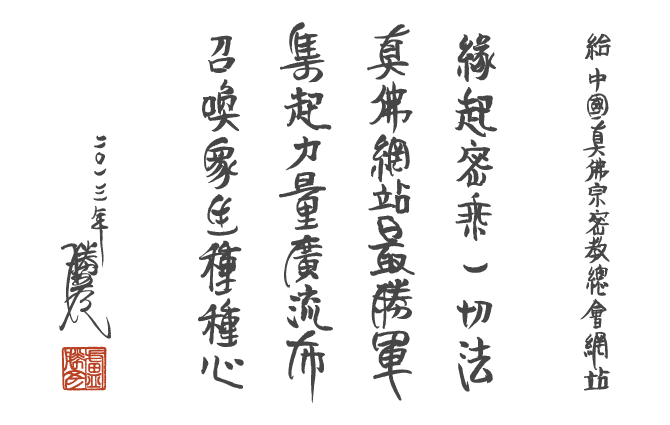 給中國真佛宗密教總會網站
緣起密乘一切法
真佛網站最勝軍
集起力量廣流布
召喚眾生種種心
二〇一三年